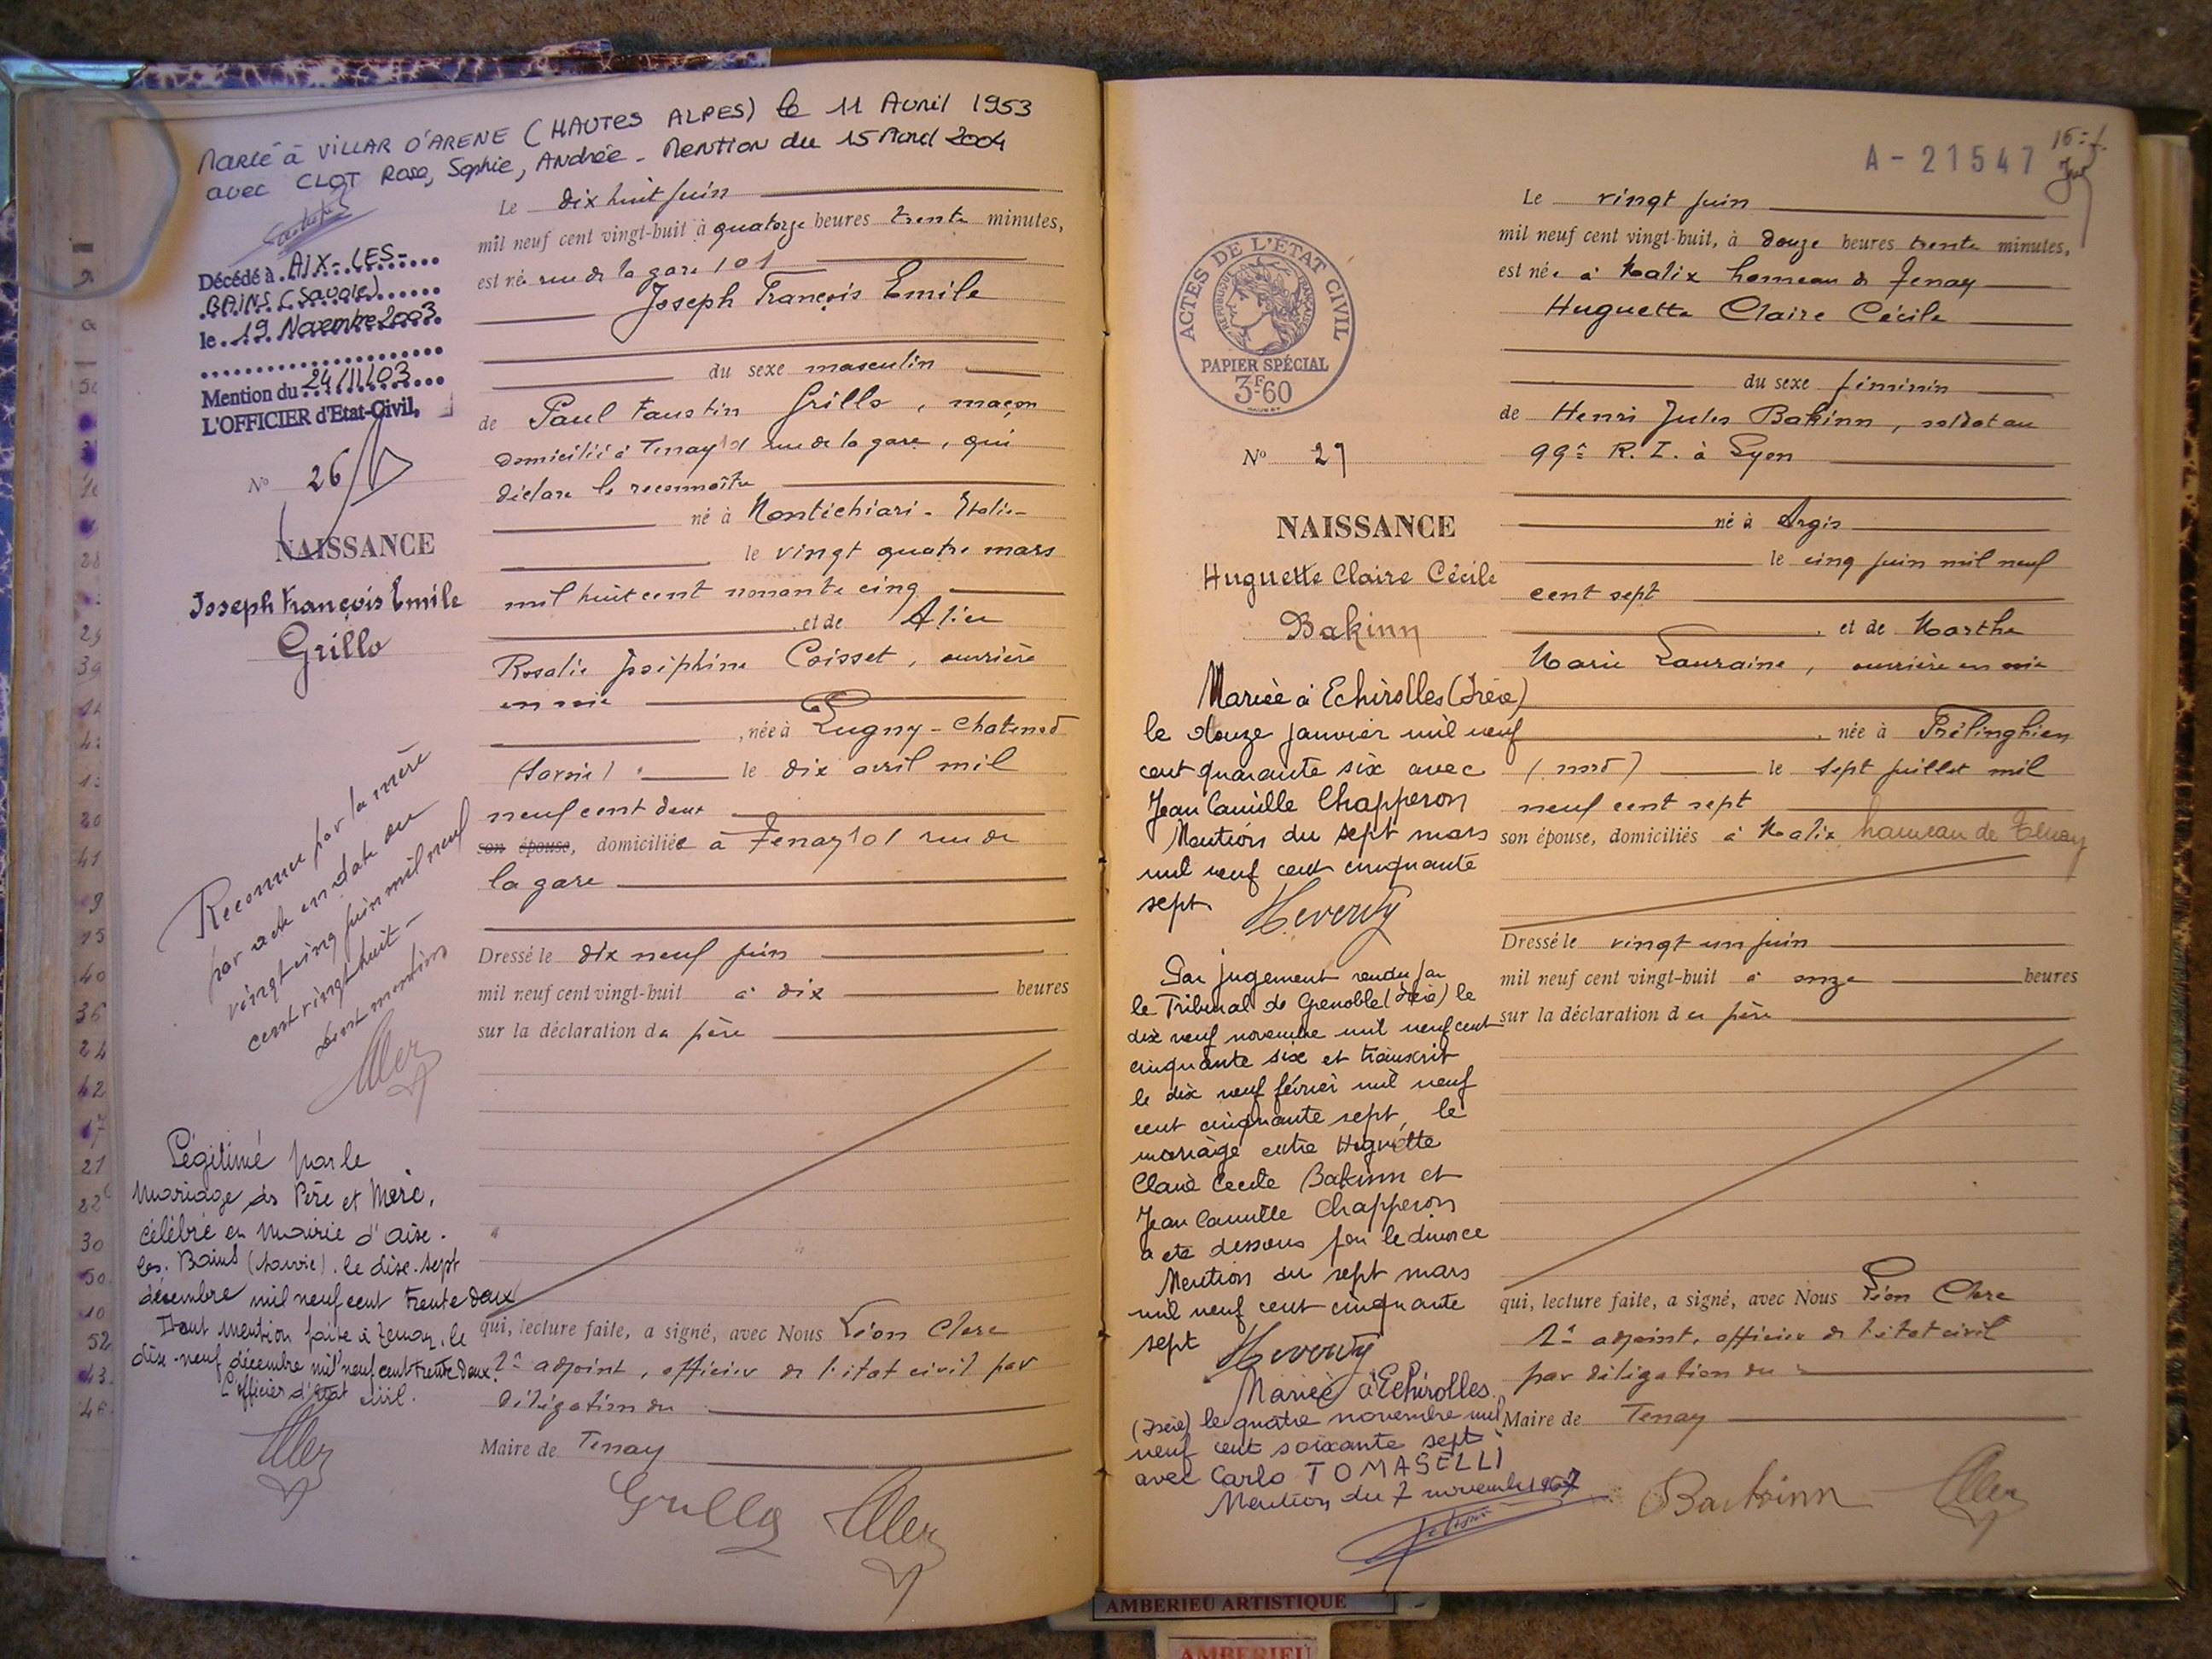 Marié à VILLAR D'ARENE (HAUTES ALPES) le 11 Avril 1953
avec CLOT Rose, Sophie, Andrée - Mention du 15 Avril 2004
Décédé à AIX-LES-
BAINS (Savoie)
le 19 Novembre 2003
Mention du 24/11/03
L'OFFICIER d'Etat-Civil,
N° 26
NAISSANCE
Joseph François Emile
Grillo
Reconnu par la mère
par acte en date du
vingt cinq juin mil neuf
cent vingt huit -
Dont mention
Légitimé par le
mariage des Père et Mère,
célébré en Mairie d'Aix-
les-Bains (Savoie) le dix-sept
décembre mil neuf cent trente deux
Dont mention faite à Tenay, le
dix-neuf décembre mil neuf cent trente deux.
L'officier d'état civil.
Le dix huit juin
mil neuf cent vingt-huit à quatorze heures trente minutes,
est né rue de la gare 101
Joseph François Emile
du sexe masculin
de Paul Faustin Grillo, maçon
domicilié à Tenay 101 rue de la gare, qui
déclare le reconnaître
né à Montichiari - Italie -
le vingt quatre mars
mil huit cent nonante cinq
et de Alice
Rosalie Joséphine Coisset, ouvrière
en soie
, née à Pugny-Chatenod
(Savoie) le dix avril mil
neuf cent deux
son épouse, domiciliée à Tenay 101 rue de
la gare
Dressé le dix neuf juin
mil neuf cent vingt-huit à dix heures
sur la déclaration du père
qui, lecture faite, a signé, avec Nous Léon Clerc
1er adjoint, officier de l'état civil par
délégation du
Maire de Tenay
Grillo
A - 21547
ACTES DE L'ÉTAT CIVIL
RÉPUBLIQUE FRANÇAISE
PAPIER SPÉCIAL
3F.60
N° 27
NAISSANCE
Huguette Claire Cécile
Bakinn
Mariée à Echirolles (Isère)
le douze janvier mil neuf
cent quarante six avec
Jean Camille Chapperon
Mention du sept mars
mil neuf cent cinquante
sept
Par jugement rendu par
le Tribunal de Grenoble (Isère) le
dix neuf novembre mil neuf cent
cinquante six et transcrit
le dix neuf février mil neuf
cent cinquante sept, le
mariage entre Huguette
Claire Cécile Bakinn et
Jean Camille Chapperon
a été dissous par le divorce
Mention du sept mars
mil neuf cent cinquante
sept
Mariée à Echirolles
(Isère) le quatre novembre mil
neuf cent soixante sept
avec Carlo TOMASELLI
Mention du 7 novembre 1967
Le vingt juin
mil neuf cent vingt-huit, à douze heures trente minutes,
est née à Malix hameau de Tenay
Huguette Claire Cécile
du sexe féminin
de Henri Jules Bakinn, soldat au
99e R.I. à Lyon
né à Argis
le cinq juin mil neuf
cent sept
et de Marthe
Marie Lauraine, ouvrière en soie
née à Frélinghien
(nord) le sept juillet mil
neuf cent sept
son épouse, domiciliés à Malix hameau de Tenay
Dressé le vingt un juin
mil neuf cent vingt-huit à onze heures
sur la déclaration du père
qui, lecture faite, a signé, avec Nous Léon Clerc
1er adjoint, officier de l'état civil
par délégation du
Maire de Tenay
Bakinn
AMBERIEU ARTISTIQUE
AMBERIEU